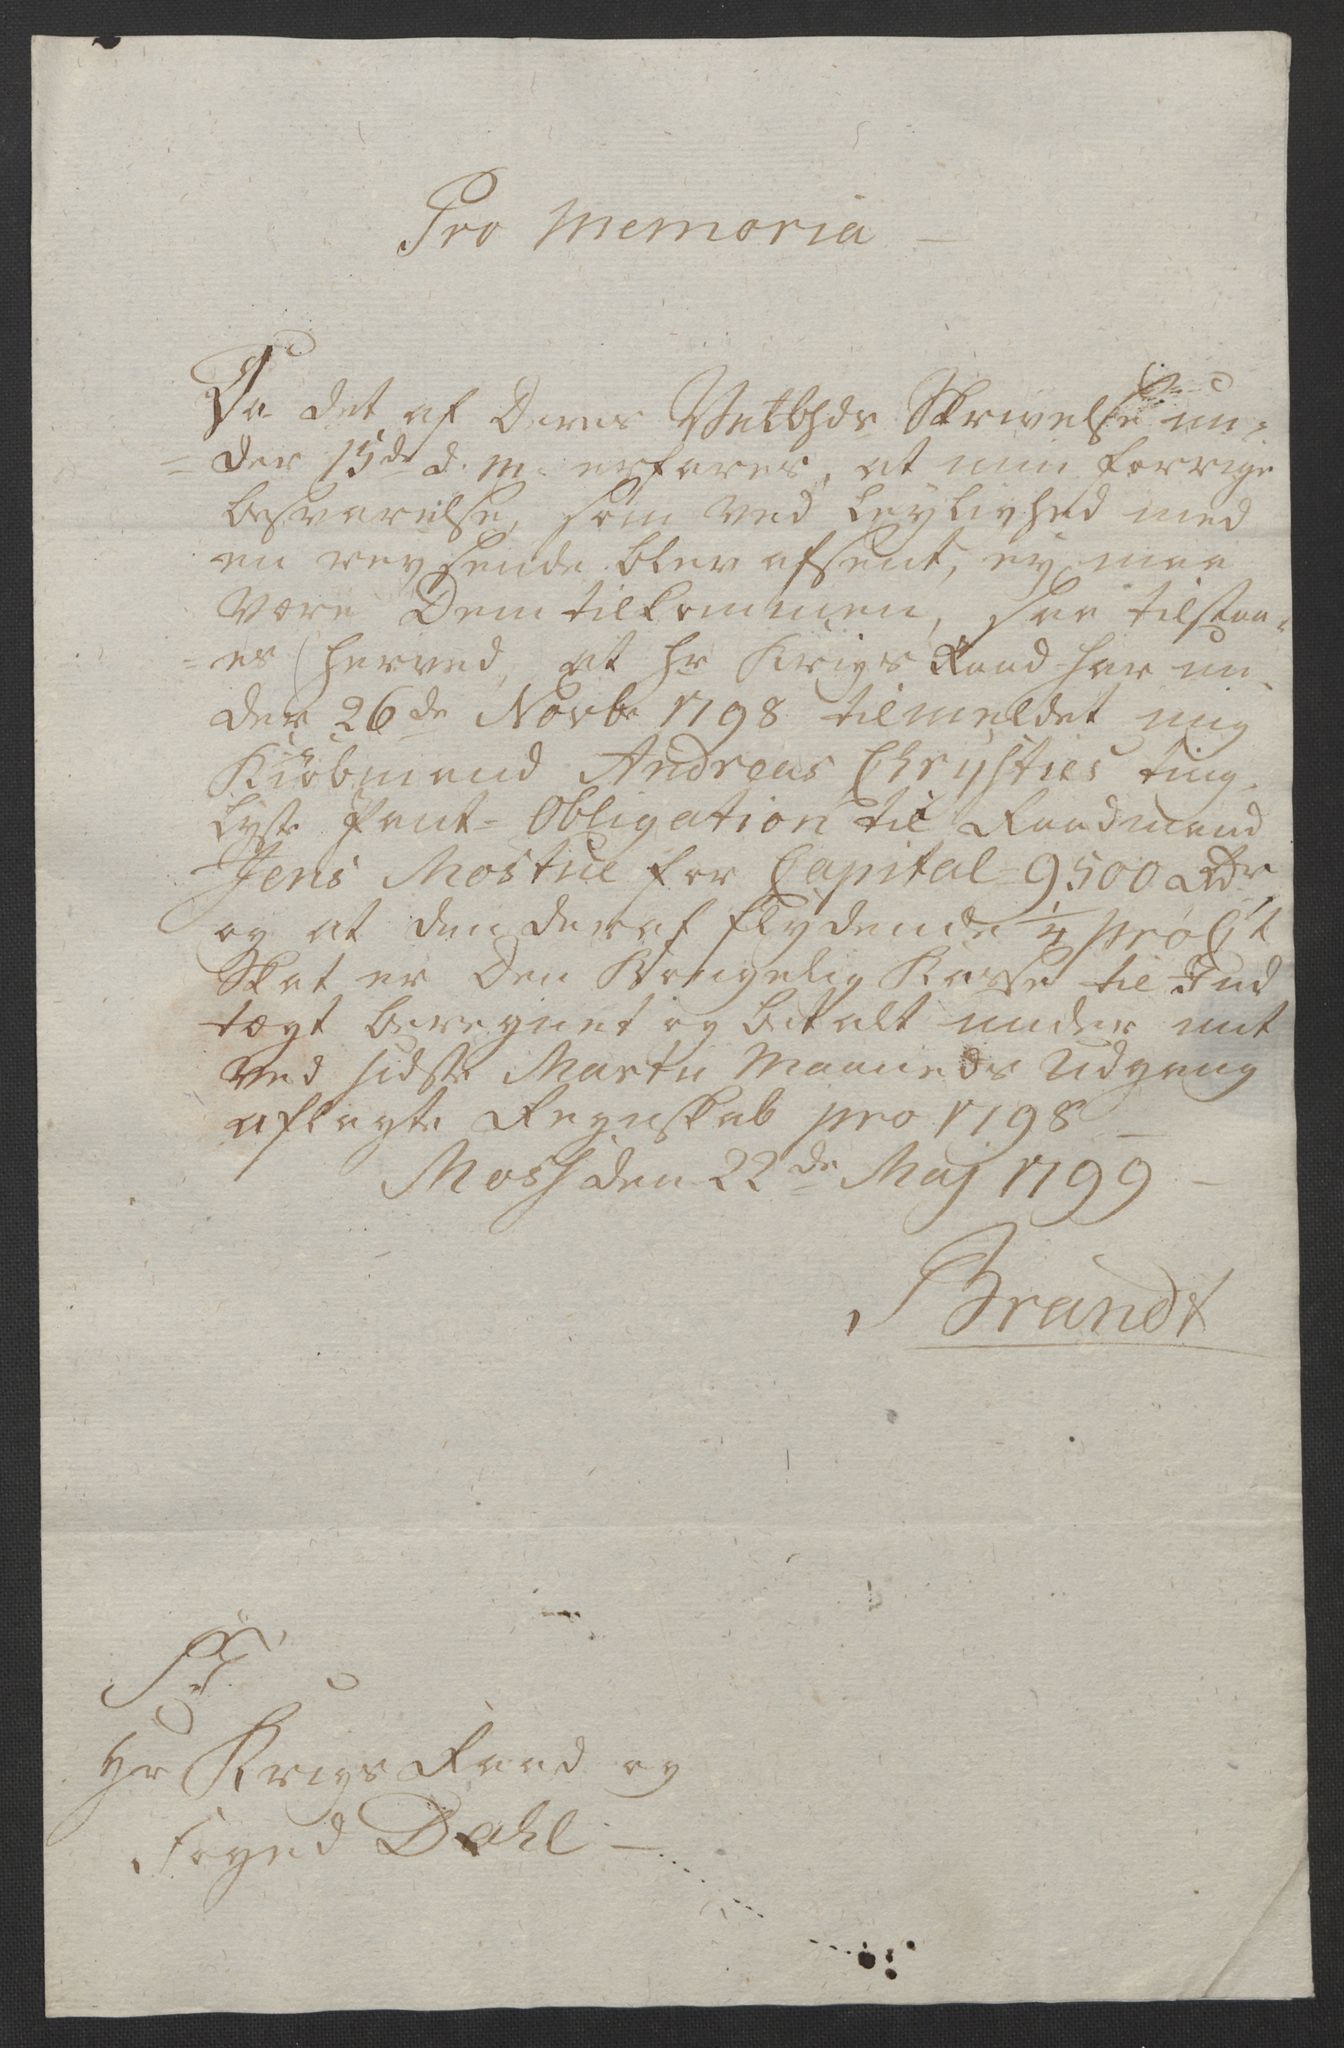 Pro Memoria
Da det af Deres Velbhds Skrivelse un-
=der 15de d. M. erfares, at min forrige
besvarelse, som ved leylighed med
en reysende blev afsent, ey maa
være Dem tilkommen, saa tilstaa-
=es herved, at Hr KrigsRaad har un-
der 26de Novbr 1798 tilmeldet mig
Kiøbmand Andreas Chrysties ting-
lyste Pant-Obligation til Raadmand
Jens Mostue for Capital 9500 Rdr
og at den deraf flydende 1/4 proCt
Skat er Den Kongelig Kasse til Ind
tægt beregnet og betalt under mit
ved sidste Martii Maaneds Udgang
aflagte Regnskab pro 1798
Moss den 22de Maj 1799
Brandt
Hr KrigsRaad og
Foged Dahl